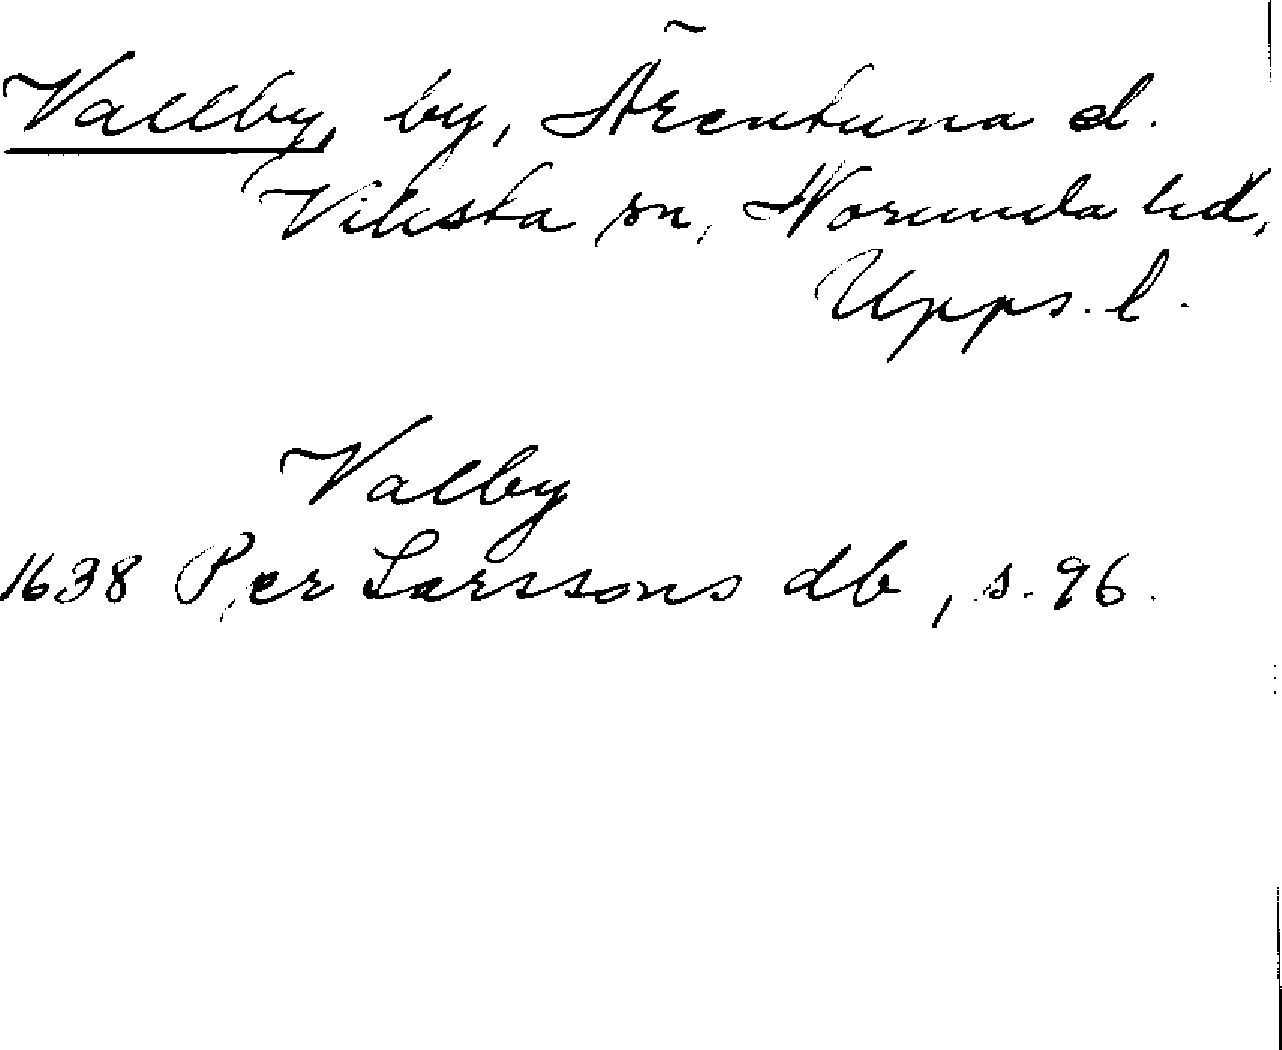 Vallby, by, Ärentuna d.
Viksta sn, Norunda hd,
Upps. l.
Valby
1638 Per Larssons db, s. 96.